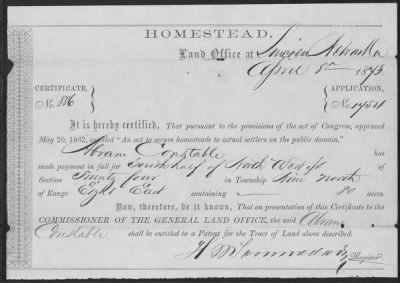 HOMESTEAD.
Land Office at Lincoln Nebraska
April 8th 1873.
CERTIFICATE, APPLICATION,
No. 886 No.
It is hereby certified, That pursuant to the provisions of the act of Congress, approved
May 20, 1862, entitled "An act to secure homesteads to actual settlers on the public domain,"
Abram Constable has
made payment in full for South half of North West qr of
Section Twenty four in Township Nine North
of Range Eight East containing 80 acres.
Now, therefore, be it known, That on presentation of this Certificate to the
COMMISSIONER OF THE GENERAL LAND OFFICE, the said Abram
Constable shall be entitled to a Patent for the Tract of Land above described.
Register.